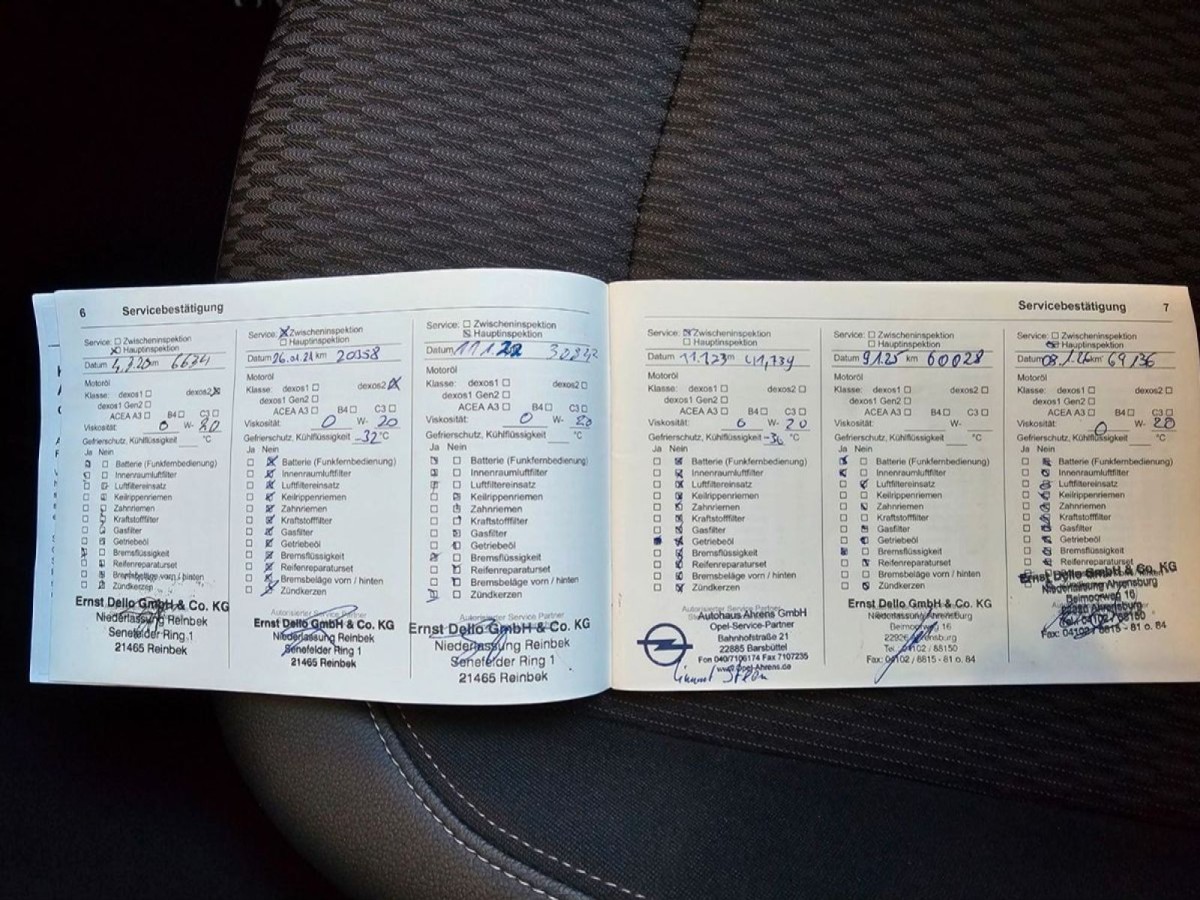 6 Servicebestätigung
Service: Zwischeninspektion
Hauptinspektion
Datum km
Motoröl
Klasse: dexos1 dexos2
dexos1 Gen2
ACEA A3 B4 C3
Viskosität: 0 W- 20
Gefrierschutz, Kühlflüssigkeit °C
Ja Nein
Batterie (Funkfernbedienung)
Innenraumluftfilter
Luftfiltereinsatz
Keilrippenriemen
Zahnriemen
Kraftstofffilter
Gasfilter
Getriebeöl
Bremsflüssigkeit
Reifenreparaturset
Bremsbeläge vorn / hinten
Zündkerzen
Ernst Dello GmbH & Co. KG
Niederlassung Reinbek
Senefelder Ring 1
21465 Reinbek
Service: Zwischeninspektion
Hauptinspektion
Datum 26.01.21 km 20358
Motoröl
Klasse: dexos1 dexos2
dexos1 Gen2
ACEA A3 B4 C3
Viskosität: 0 W- 20
Gefrierschutz, Kühlflüssigkeit -32 °C
Ja Nein
Batterie (Funkfernbedienung)
Innenraumluftfilter
Luftfiltereinsatz
Keilrippenriemen
Zahnriemen
Kraftstofffilter
Gasfilter
Getriebeöl
Bremsflüssigkeit
Reifenreparaturset
Bremsbeläge vorn / hinten
Zündkerzen
Autorisierter Service Partner
Ernst Dello GmbH & Co. KG
Niederlassung Reinbek
Senefelder Ring 1
21465 Reinbek
Service: Zwischeninspektion
Hauptinspektion
Datum 11.1.22
Motoröl
Klasse: dexos1 dexos2
dexos1 Gen2
ACEA A3 B4 C3
Viskosität: 0 W- 20
Gefrierschutz, Kühlflüssigkeit °C
Ja Nein
Batterie (Funkfernbedienung)
Innenraumluftfilter
Luftfiltereinsatz
Keilrippenriemen
Zahnriemen
Kraftstofffilter
Gasfilter
Getriebeöl
Bremsflüssigkeit
Reifenreparaturset
Bremsbeläge vorn / hinten
Zündkerzen
Autorisierter Service Partner
Ernst Dello GmbH & Co. KG
Niederlassung Reinbek
Senefelder Ring 1
21465 Reinbek
Servicebestätigung 7
Service: Zwischeninspektion
Hauptinspektion
Datum 11.1.23 km 41,339
Motoröl
Klasse: dexos1 dexos2
dexos1 Gen2
ACEA A3 B4 C3
Viskosität: 0 W- 20
Gefrierschutz, Kühlflüssigkeit °C
Ja Nein
Batterie (Funkfernbedienung)
Innenraumluftfilter
Luftfiltereinsatz
Keilrippenriemen
Zahnriemen
Kraftstofffilter
Gasfilter
Getriebeöl
Bremsflüssigkeit
Reifenreparaturset
Bremsbeläge vorn / hinten
Zündkerzen
Autohaus Ahrens GmbH
Opel-Service-Partner
Bahnhofstraße 21
22885 Barsbüttel
Fon 040/7106174 Fax 7107235
www.Opel-Ahrens.de
Service: Zwischeninspektion
Hauptinspektion
Datum 9.1.25 km 60028
Motoröl
Klasse: dexos1 dexos2
dexos1 Gen2
ACEA A3 B4 C3
Viskosität: W-
Gefrierschutz, Kühlflüssigkeit °C
Ja Nein
Batterie (Funkfernbedienung)
Innenraumluftfilter
Luftfiltereinsatz
Keilrippenriemen
Zahnriemen
Kraftstofffilter
Gasfilter
Getriebeöl
Bremsflüssigkeit
Reifenreparaturset
Bremsbeläge vorn / hinten
Zündkerzen
Ernst Dello GmbH & Co. KG
Niederlassung Ahrensburg
Beimoorweg 16
Ahrensburg
Tel. 04102 / 88150
Fax: 04102 / 8815 - 81 o. 84
Service: Zwischeninspektion
Hauptinspektion
Datum 08.1.26 km 69136
Motoröl
Klasse: dexos1 dexos2
dexos1 Gen2
ACEA A3 B4 C3
Viskosität: 0 W- 20
Gefrierschutz, Kühlflüssigkeit °C
Ja Nein
Batterie (Funkfernbedienung)
Innenraumluftfilter
Luftfiltereinsatz
Keilrippenriemen
Zahnriemen
Kraftstofffilter
Gasfilter
Getriebeöl
Bremsflüssigkeit
Reifenreparaturset
Ernst Dello GmbH & Co. KG
Niederlassung Ahrensburg
Beimoorweg 16
Ahrensburg
Tel. 04102 / 88150
Fax: 04102 / 8815 - 81 o. 84